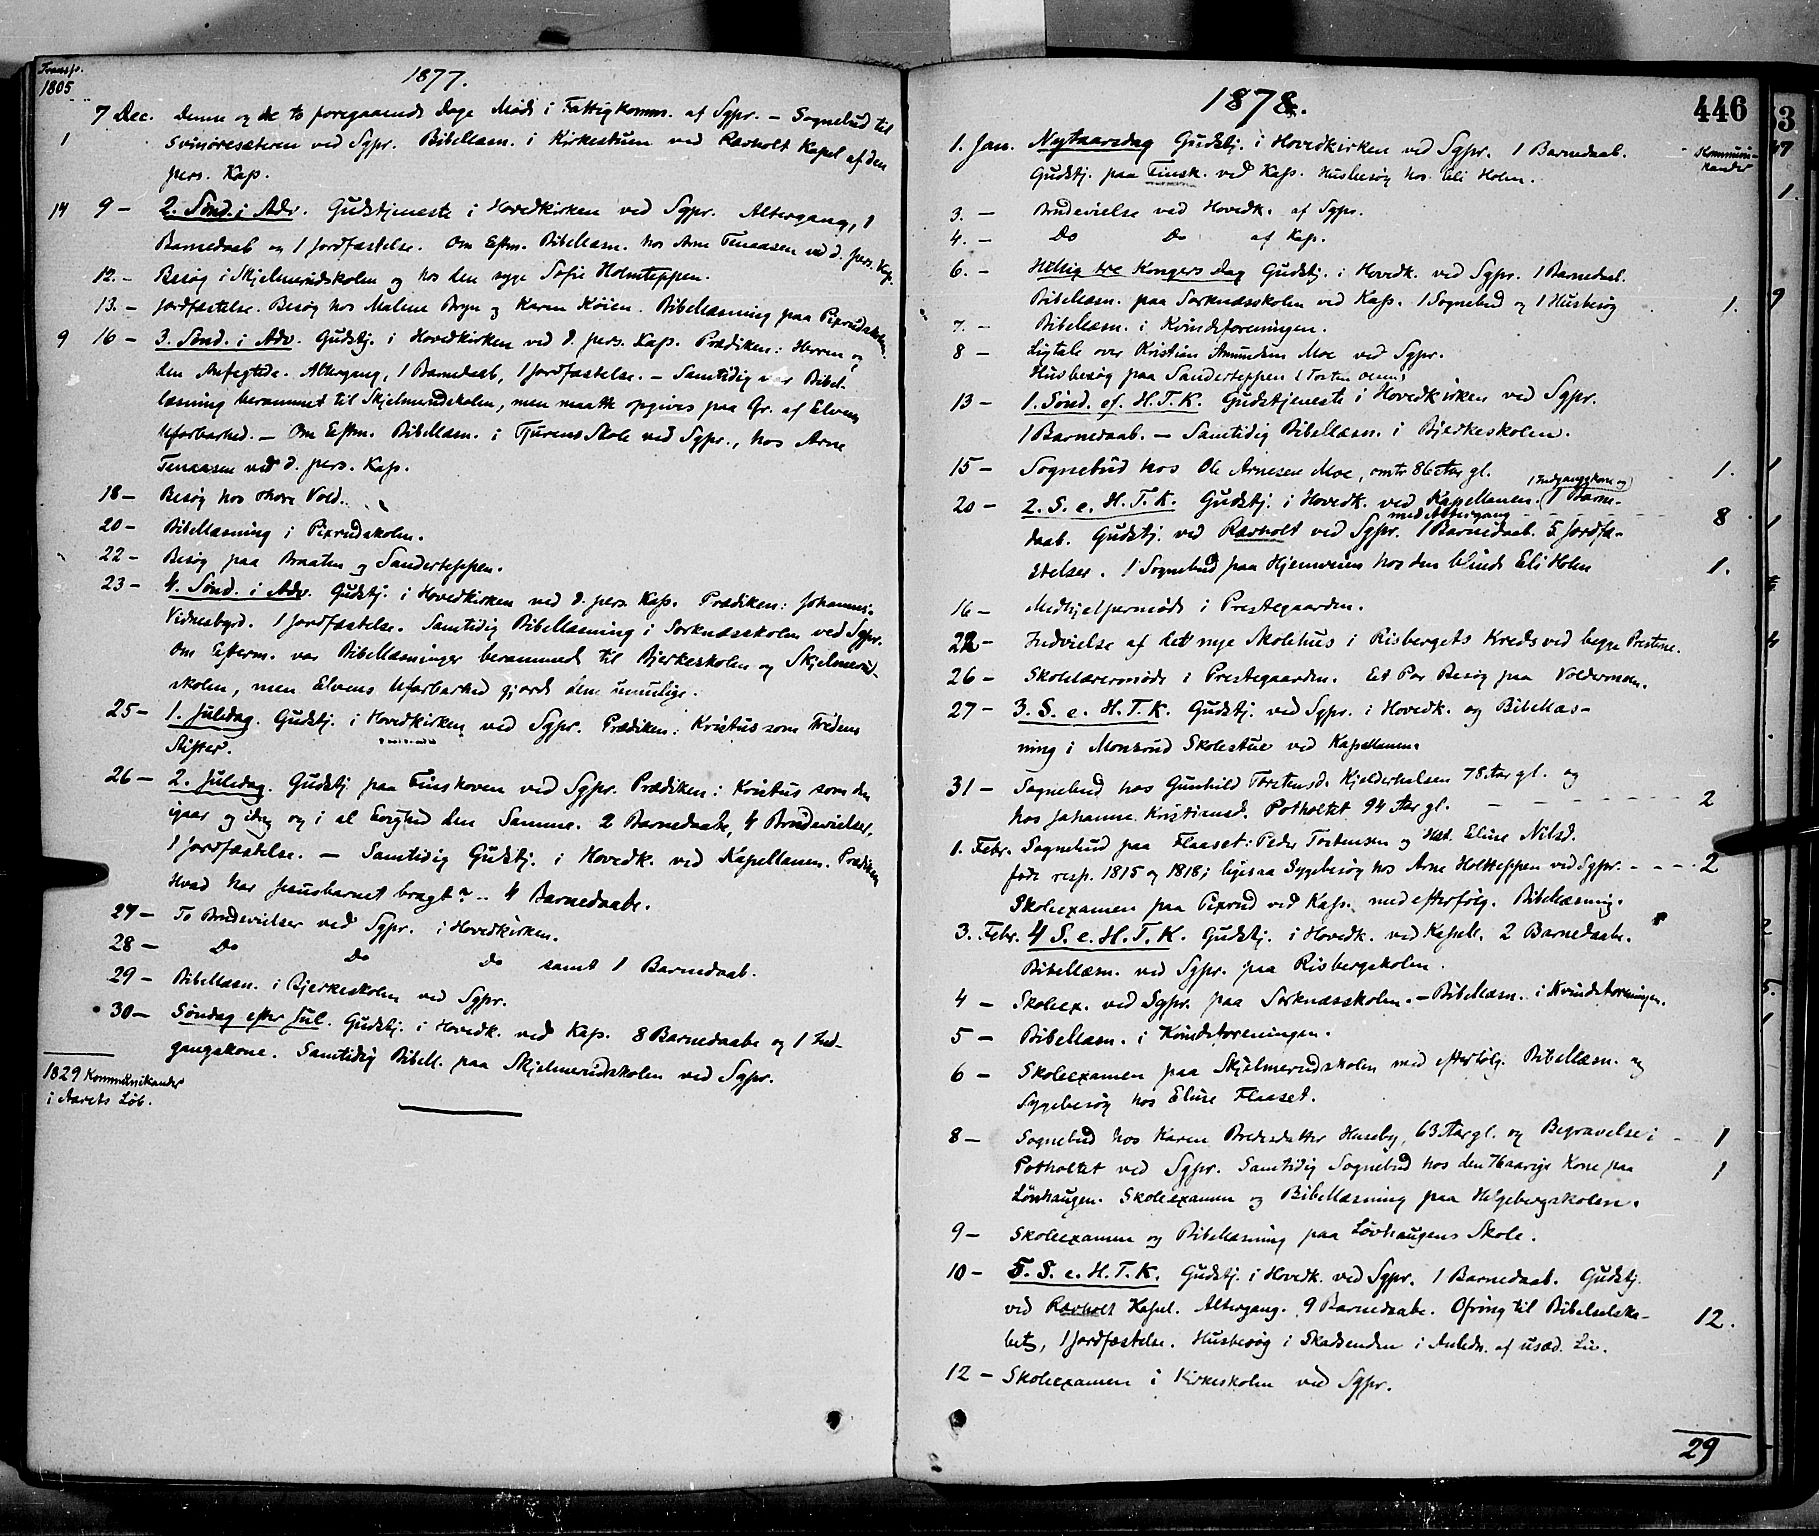 Transp.
1805
1877.
7 Dec. Denne og de to foregaaende Dage Møde i Fattigkomms. af Sgpr. – Sognebud til
1 Svinøresæteren ved Sgpr. Bibellæsn. i Kirkestuen ved Rævholt Kapel af den
pers. Kap.
14 9 – 2. Sønd. i Adv. Gudstjeneste i Hovedkirken ved Sgpr. Altergang, 1
Barnedaab og 1 Jordfæstelse. Om Eftm. Bibellæsn. hos Arne Tenaasen ved d. pers. Kap.
12. – Besøg i Skjelmerudskolen og hos den syge Sofie Holmteppen.
13. – Jordfæstelse. Besøg hos Malene Bryn og Karen Köien. Bibellæsning paa Pexrudskolen.
9 16 – 3. Sønd. i Adv. Gudstj. i Hovedkirken ved d. pers. Kap. Prædiken: Herren og
den Anfegtede. Altergang, 1 Barnedaab, 1 Jordfæstelse. – Samtidig var Bibel-
læsning berammet til Skjelmerudskolen, men maatte opgives paa Gr. af Elvens
Ufarbarhed. – Om Eftm. Bibellæsn. i Tjurens Skole ved Sgpr., hos Arne
Tenaasen ved d. pers. Kap.
18 – Besøg hos Thore Vold.
20 – Bibellæsning i Pexrudskolen.
22 – Besøg paa Braaten og Sanderteppen.
23 – 4. Sønd. i Adv. Gudstj. i Hovedkirken ved d. pers. Kap. Prædiken: Johannes's
Vidnesbyrd. 1 Jordfæstelse. Samtidig Bibellæsning i Sorknæsskolen ved Sgpr.
Om Efterm. var Bibellæsninger berammede til Bjerkeskolen og Skjelmerud-
skolen, men Elvens Ufarbarhed gjorde dem umulige.
25 – 1. Juledag. Gudstj. i Hovedkirken ved Sgpr. Prædiken: Kristus som Fredens
Stifter.
26 – 2. Juledag. Gudstj. paa Finskoven ved Sgpr. Prædiken: Kristus som den
igaar og idag og i al Evighed den Samme. 2 Barnedaabe, 4 Brudevielser,
1 Jordfæstelse. – Samtidig Gudstj. i Hovedk. ved Kapellanen. Prædiken
Hvad har Jesusbarnet bragt? 4 Barnedaabe.
27 – To Brudevielser ved Sgpr. i Hovedkirken.
28 – Do Do Do samt 1 Barnedaab.
29 – Bibellæsn. i Bjerkeskolen ved Sgpr.
30 – Søndag efter Jul. Gudstj. i Hovedk. ved Kap. 8 Barnedaabe og 1 Ind-
gangskone. Samtidig Bibell. paa Skjelmerudskolen ved Sgpr.
1829 Kommunikander
i Aarets Løb.
1878.
446
Kommuni-
kander
1. Jan. Nytaarsdag Gudstj. i Hovedkirken ved Sgpr. 1 Barnedaab.
Gudstj. paa Finsk. ved Kap. Husbesøg hos Eli Holen.
3. – Brudevielse ved Hovedk. af Sgpr.
4. – Do Do af Kap.
6. – Hellig tre Kongers Dag Gudstj. i Hovedk. ved Sgpr. 1 Barnedaab.
Bibellæsn. paa Sorknæsskolen ved Kap. 1 Sognebud og 1 Husbesøg 1.
7. – Bibellæsn. i Kvindeforeningen.
8 – Ligtale over Kristian Amundsen Moe ved Sgpr.
Husbesøg paa Sanderteppen (Torsten Olsen)
13 – 1. Sønd. ef. H. T. K. Gudstjeneste i Hovedkirken ved Sgpr.
1 Barnedaab. – Samtidig Bibellæsn. i Bjerkeskolen.
15 – Sognebud hos Ole Arnesen Moe, omtr 86 Aar gl. 1.
1 Indgangskone og
20 – 2. S. e. H. T. K. Gudstj. i Hovedk. ved Kapellanen. (1 Barne-
med Altergang 8
daab. Gudstj. ved Rævholt ved Sgpr. 1 Barnedaab. 5 Jordfæ-
stelser. 1 Sognebud paa Hjemveien hos den blinde Eli Holen 1.
16 – Medhjelpermøde i Prestegaarden.
22 – Indvielse af det nye Skolehus i Risbergets Kreds ved begge Prestene.
26 – Skolelærermøde i Prestegaarden. Et Par Besøg paa Voldermoen.
27 – 3. S. e. H. T. K. Gudstj. ved Sgpr. i Hovedk. og Bibellæs-
ning i Monsrud Skolestue ved Kapellanen.
31 – Sognebud hos Gunhild Torstensd. Kjelderhalsen 78 Aar gl. og
hos Johanne Kristiansd. Potholtet 94 Aar gl. 2
1. Febr. Sognebud paa Flaaset: Peder Torstensen og Hst. Eline Nilsd.
føde resp. 1815 og 1818; ligesaa Sygebesøg hos Arne Holtteppen ved Sgpr. 2
Skoleexamen paa Pexrud ved Kap. med efterfølg. Bibellæsning.
3. Febr. 4 S. e. H. T. K. Gudstj. i Hovedk. ved Kapell. 2 Barnedaabe.
Bibellæsn. ved Sgpr. paa Risbergskolen.
4 – Skoleex. ved Sgpr. paa Sorknæsskolen. – Bibellæsn. i Kvindeforeningen.
5 – Bibellæsn. i Kvindeforeningen.
6 – Skoleexamen paa Skjelmerudskolen med efterfølg. Bibellæsn. og
Sygebesøg hos Eline Flaaset.
8 – Sognebud hos Karen Bredesdatter Huseby, 63 Aar gl. og Begravelse i 1
Potholtet ved Sgpr. Samtidig Sognebud hos den 76aarige Kone paa 1
Lövhaugen. Skoleexamen og Bibellæsning paa Helgebergskolen.
9 – Skoleexamen og Bibellæsning paa Løvhaugens Skole.
10 – 5. S. e. H. T. K. Gudstj. i Hovedk. ved Sgpr. 1 Barnedaab. Gudstj.
ved Rævholt Kapel. Altergang. 9 Barnedaabe. Ofring til Bibelselska-
bet, 1 Jordfæstelse. Husbesøg i Skadsenden i Anledn. af usæd. Liv. 12.
12 – Skoleexamen i Kirkeskolen ved Sgpr.
29